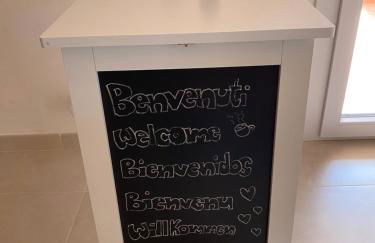 Benvenuti
Welcome
Bienvenidos
Bienvenu
Willkommen